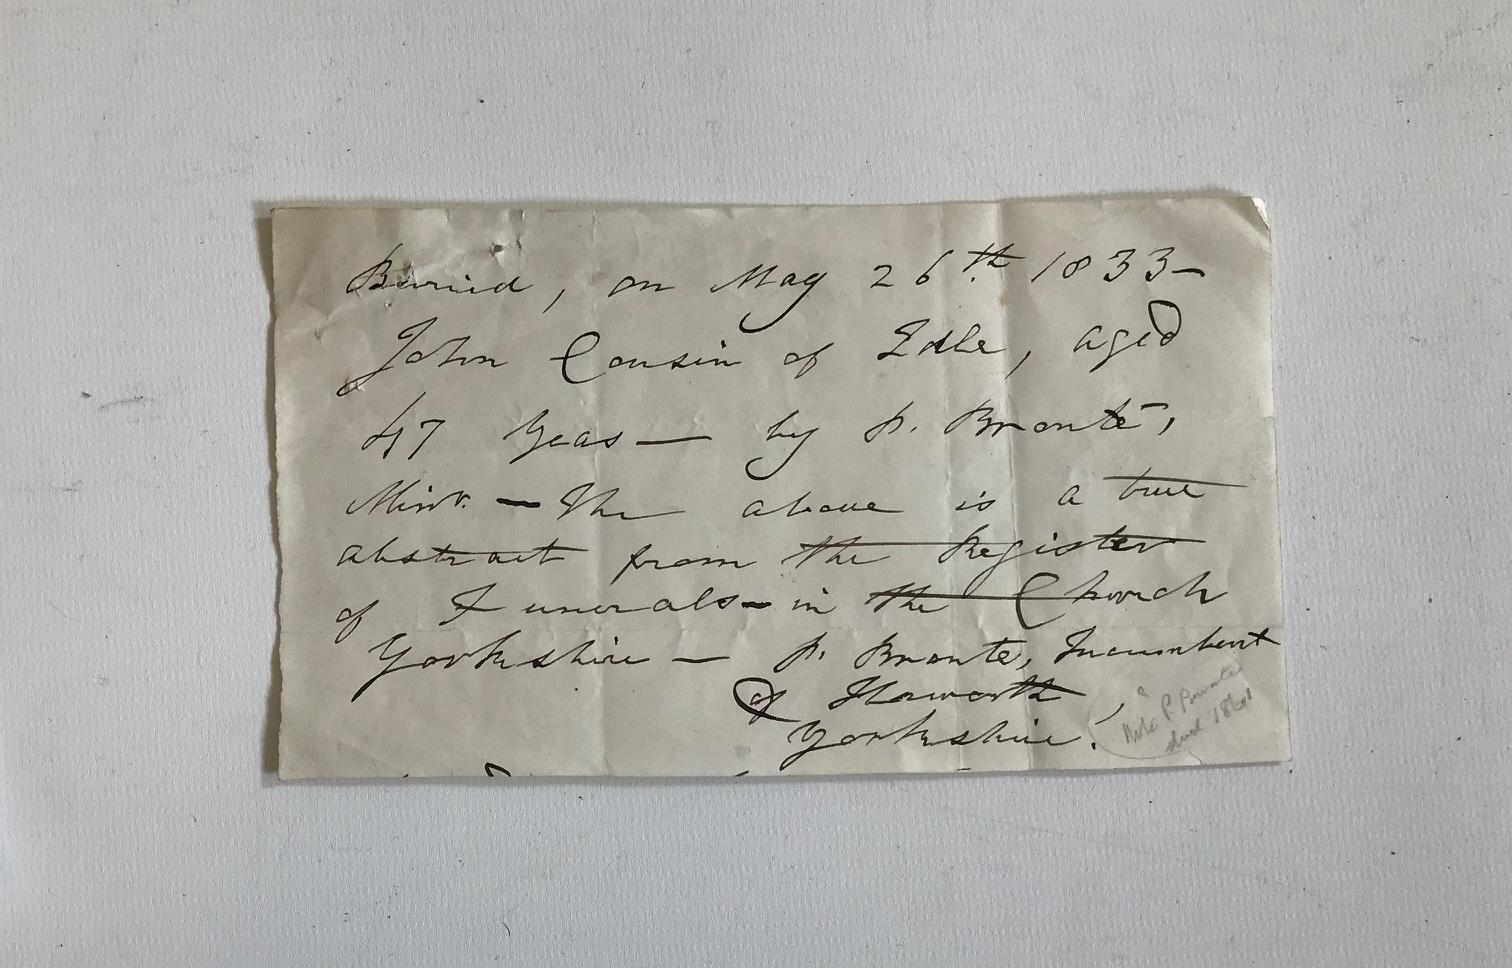 Buried, on May 26th. 1833—
John Cousin of Idle, aged
47 Yeas— by P. Bronte,
Minr. — The above is a true
abstract from the Register
of Funerals— in the Church
Yorkshire — P. Bronte, Incumbent
of Haworth,
Yorkshire.
P. Bronte
died 1861